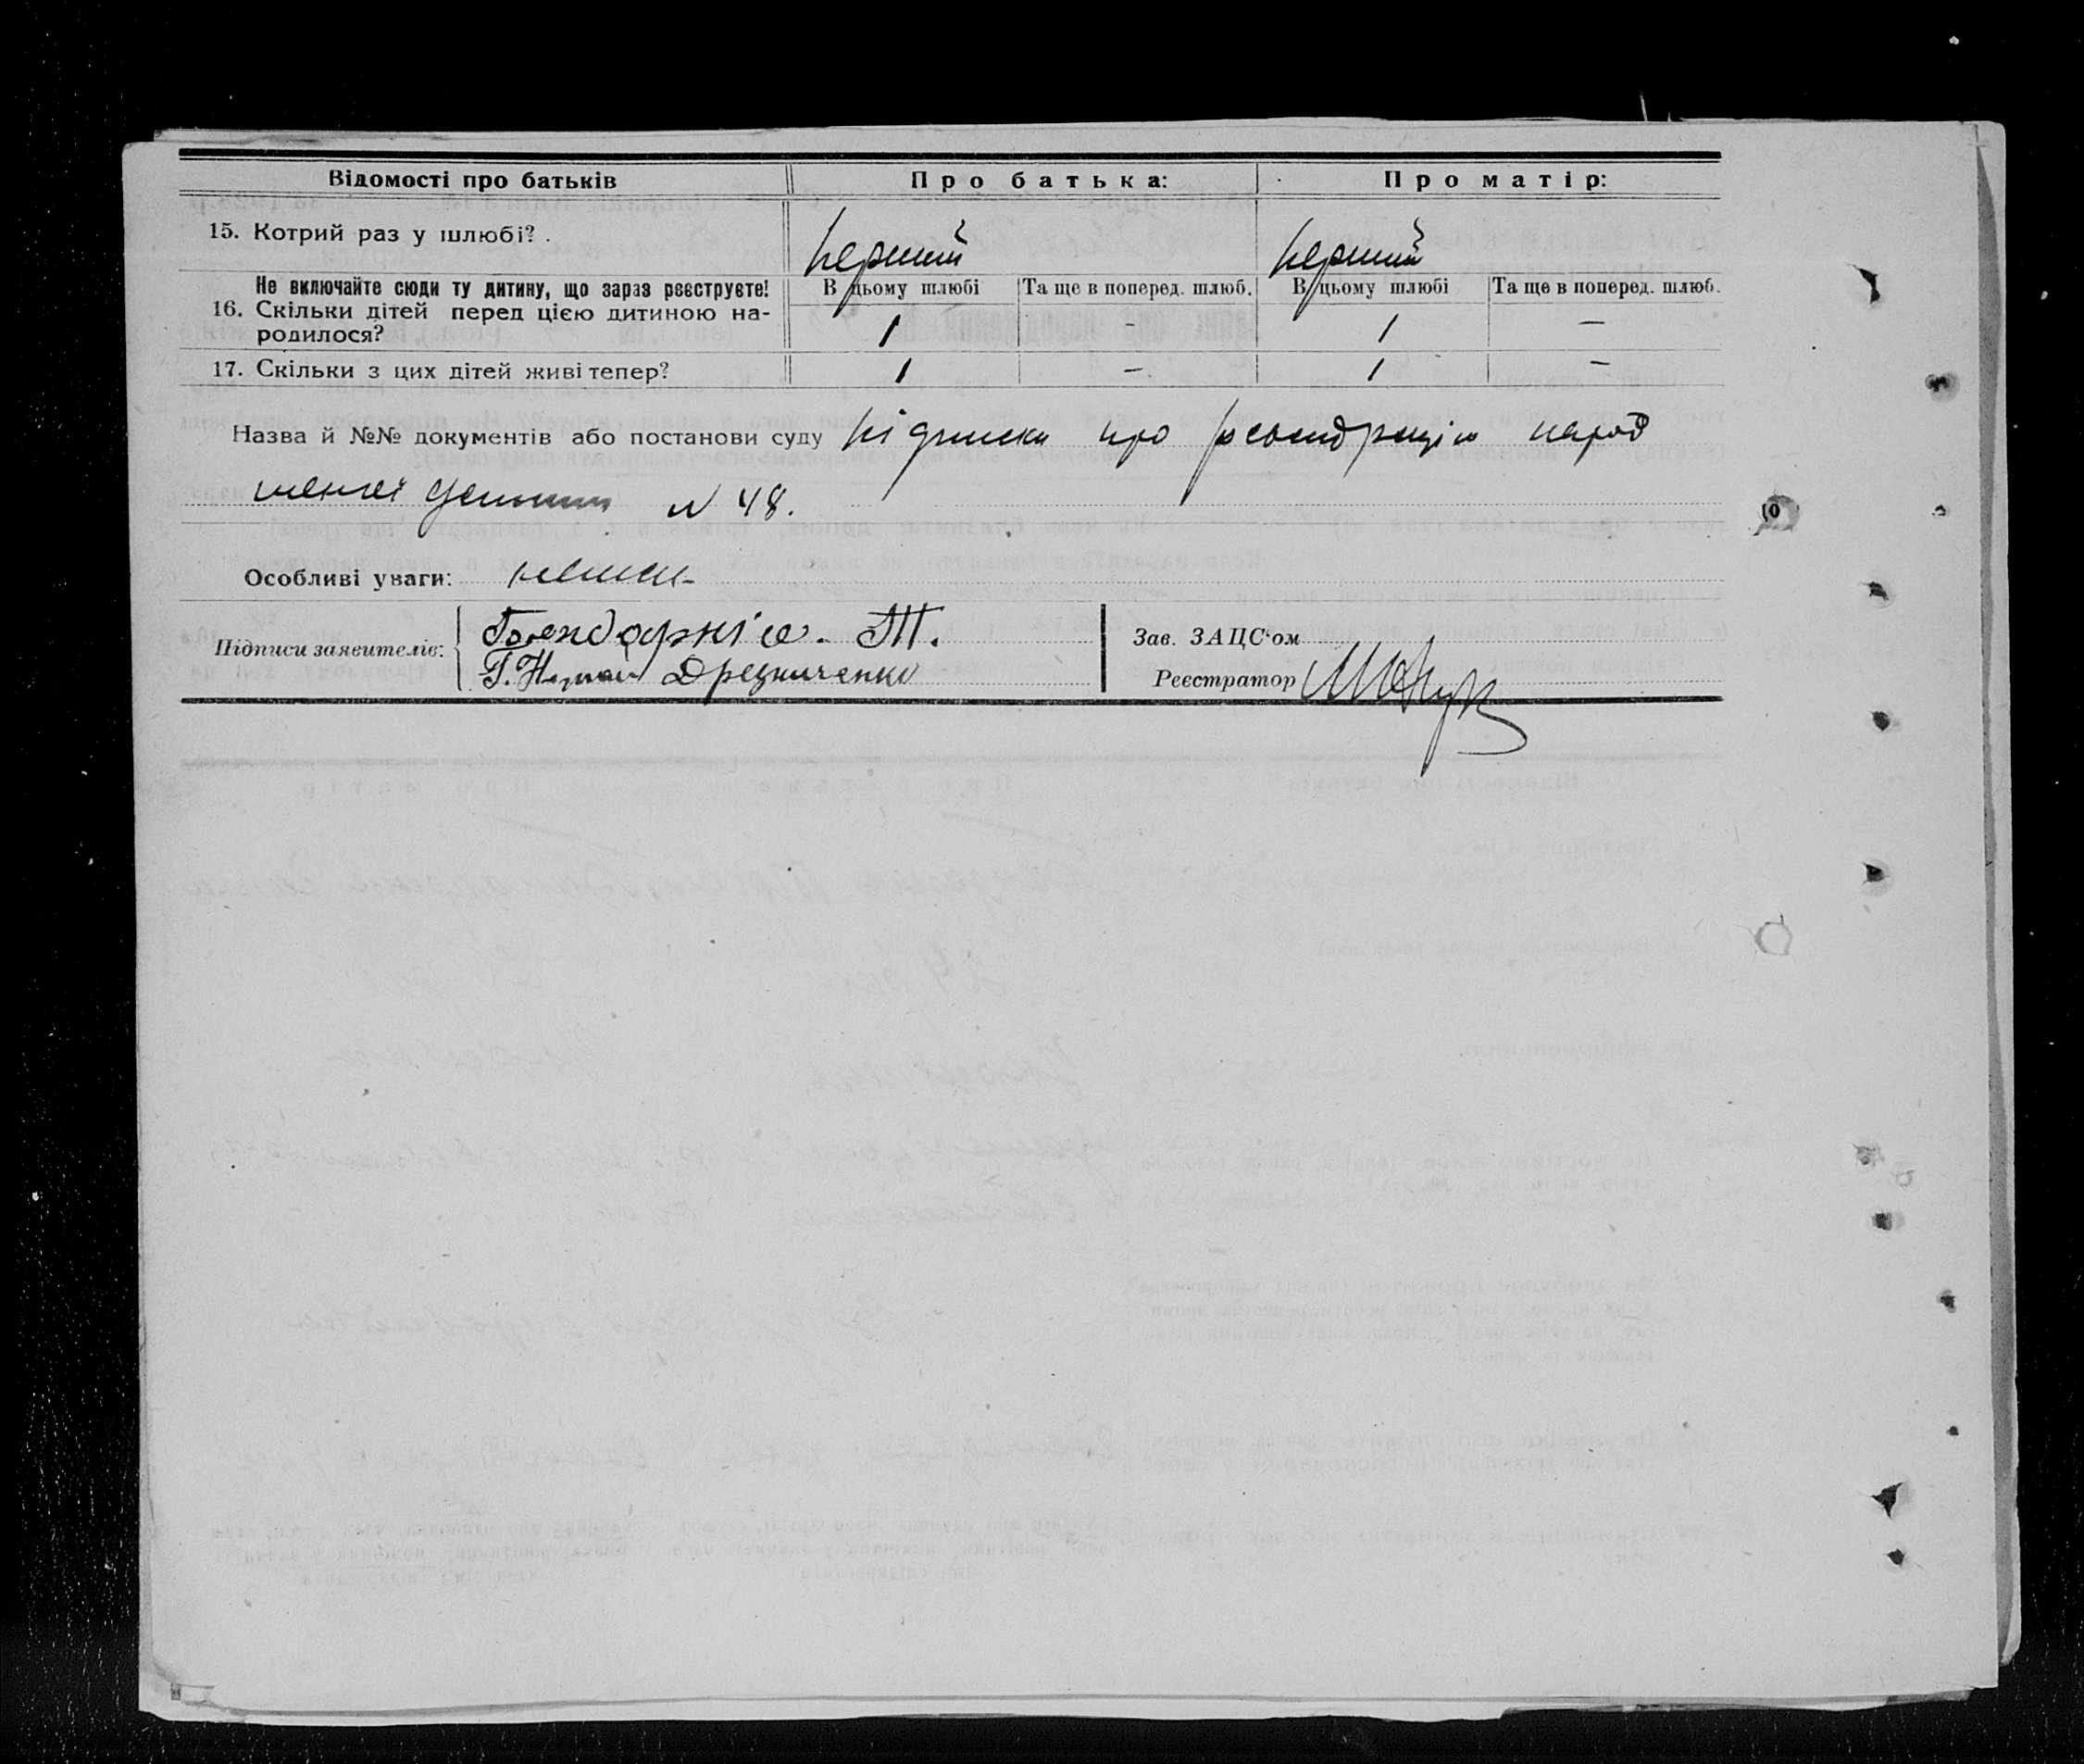 Відомості про батьків Про батька: Про матір:
15. Котрий раз у шлюбі? . перший перший
Не включайте сюди ту дитину, що зараз реєструєте! В цьому шлюбі Та ще в поперед. шлюб. В цьому шлюбі Та ще в поперед. шлюб.
16. Скільки дітей перед цією дитиною на-
родилося? 1 - 1 -
17. Скільки з цих дітей живі тепер? 1 - 1 -
Назва й №№ документів або постанови суду про народ
N 48.
Особливі уваги: немає
Підписи заявителів: Т.
Зав. ЗАЦС'ом
Реєстратор